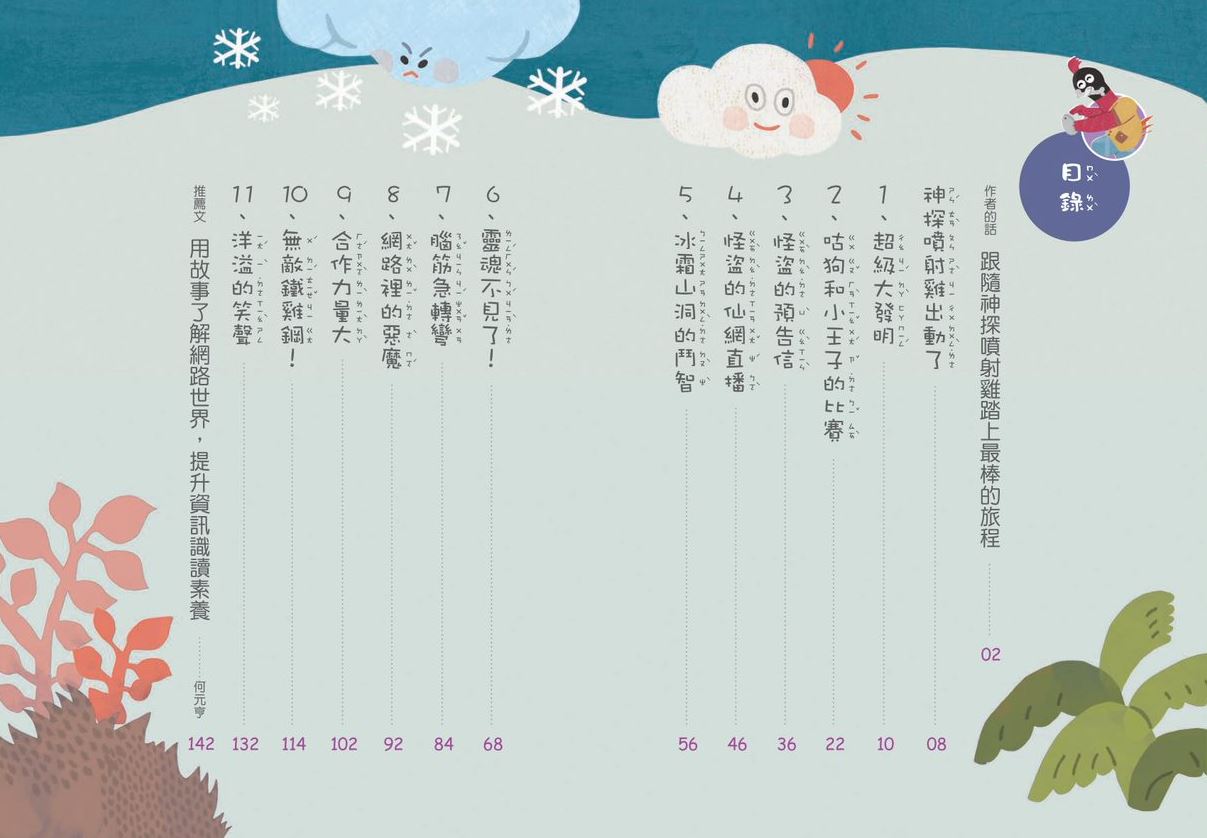 目錄
作者的話 跟隨神探噴射雞踏上最棒的旅程 02
神探噴射雞出動了 08
1、超級大發明 10
2、咕狗和小王子的比賽 22
3、怪盜的預告信 36
4、怪盜的仙網直播 46
5、冰霜山洞的鬥智 56
6、靈魂不見了！ 68
7、腦筋急轉彎 84
8、網路裡的惡魔 92
9、合作力量大 102
10、無敵鐵雞鋼！ 114
11、洋溢的笑聲 132
推薦文 用故事了解網路世界，提升資訊識讀素養 何元亨 142